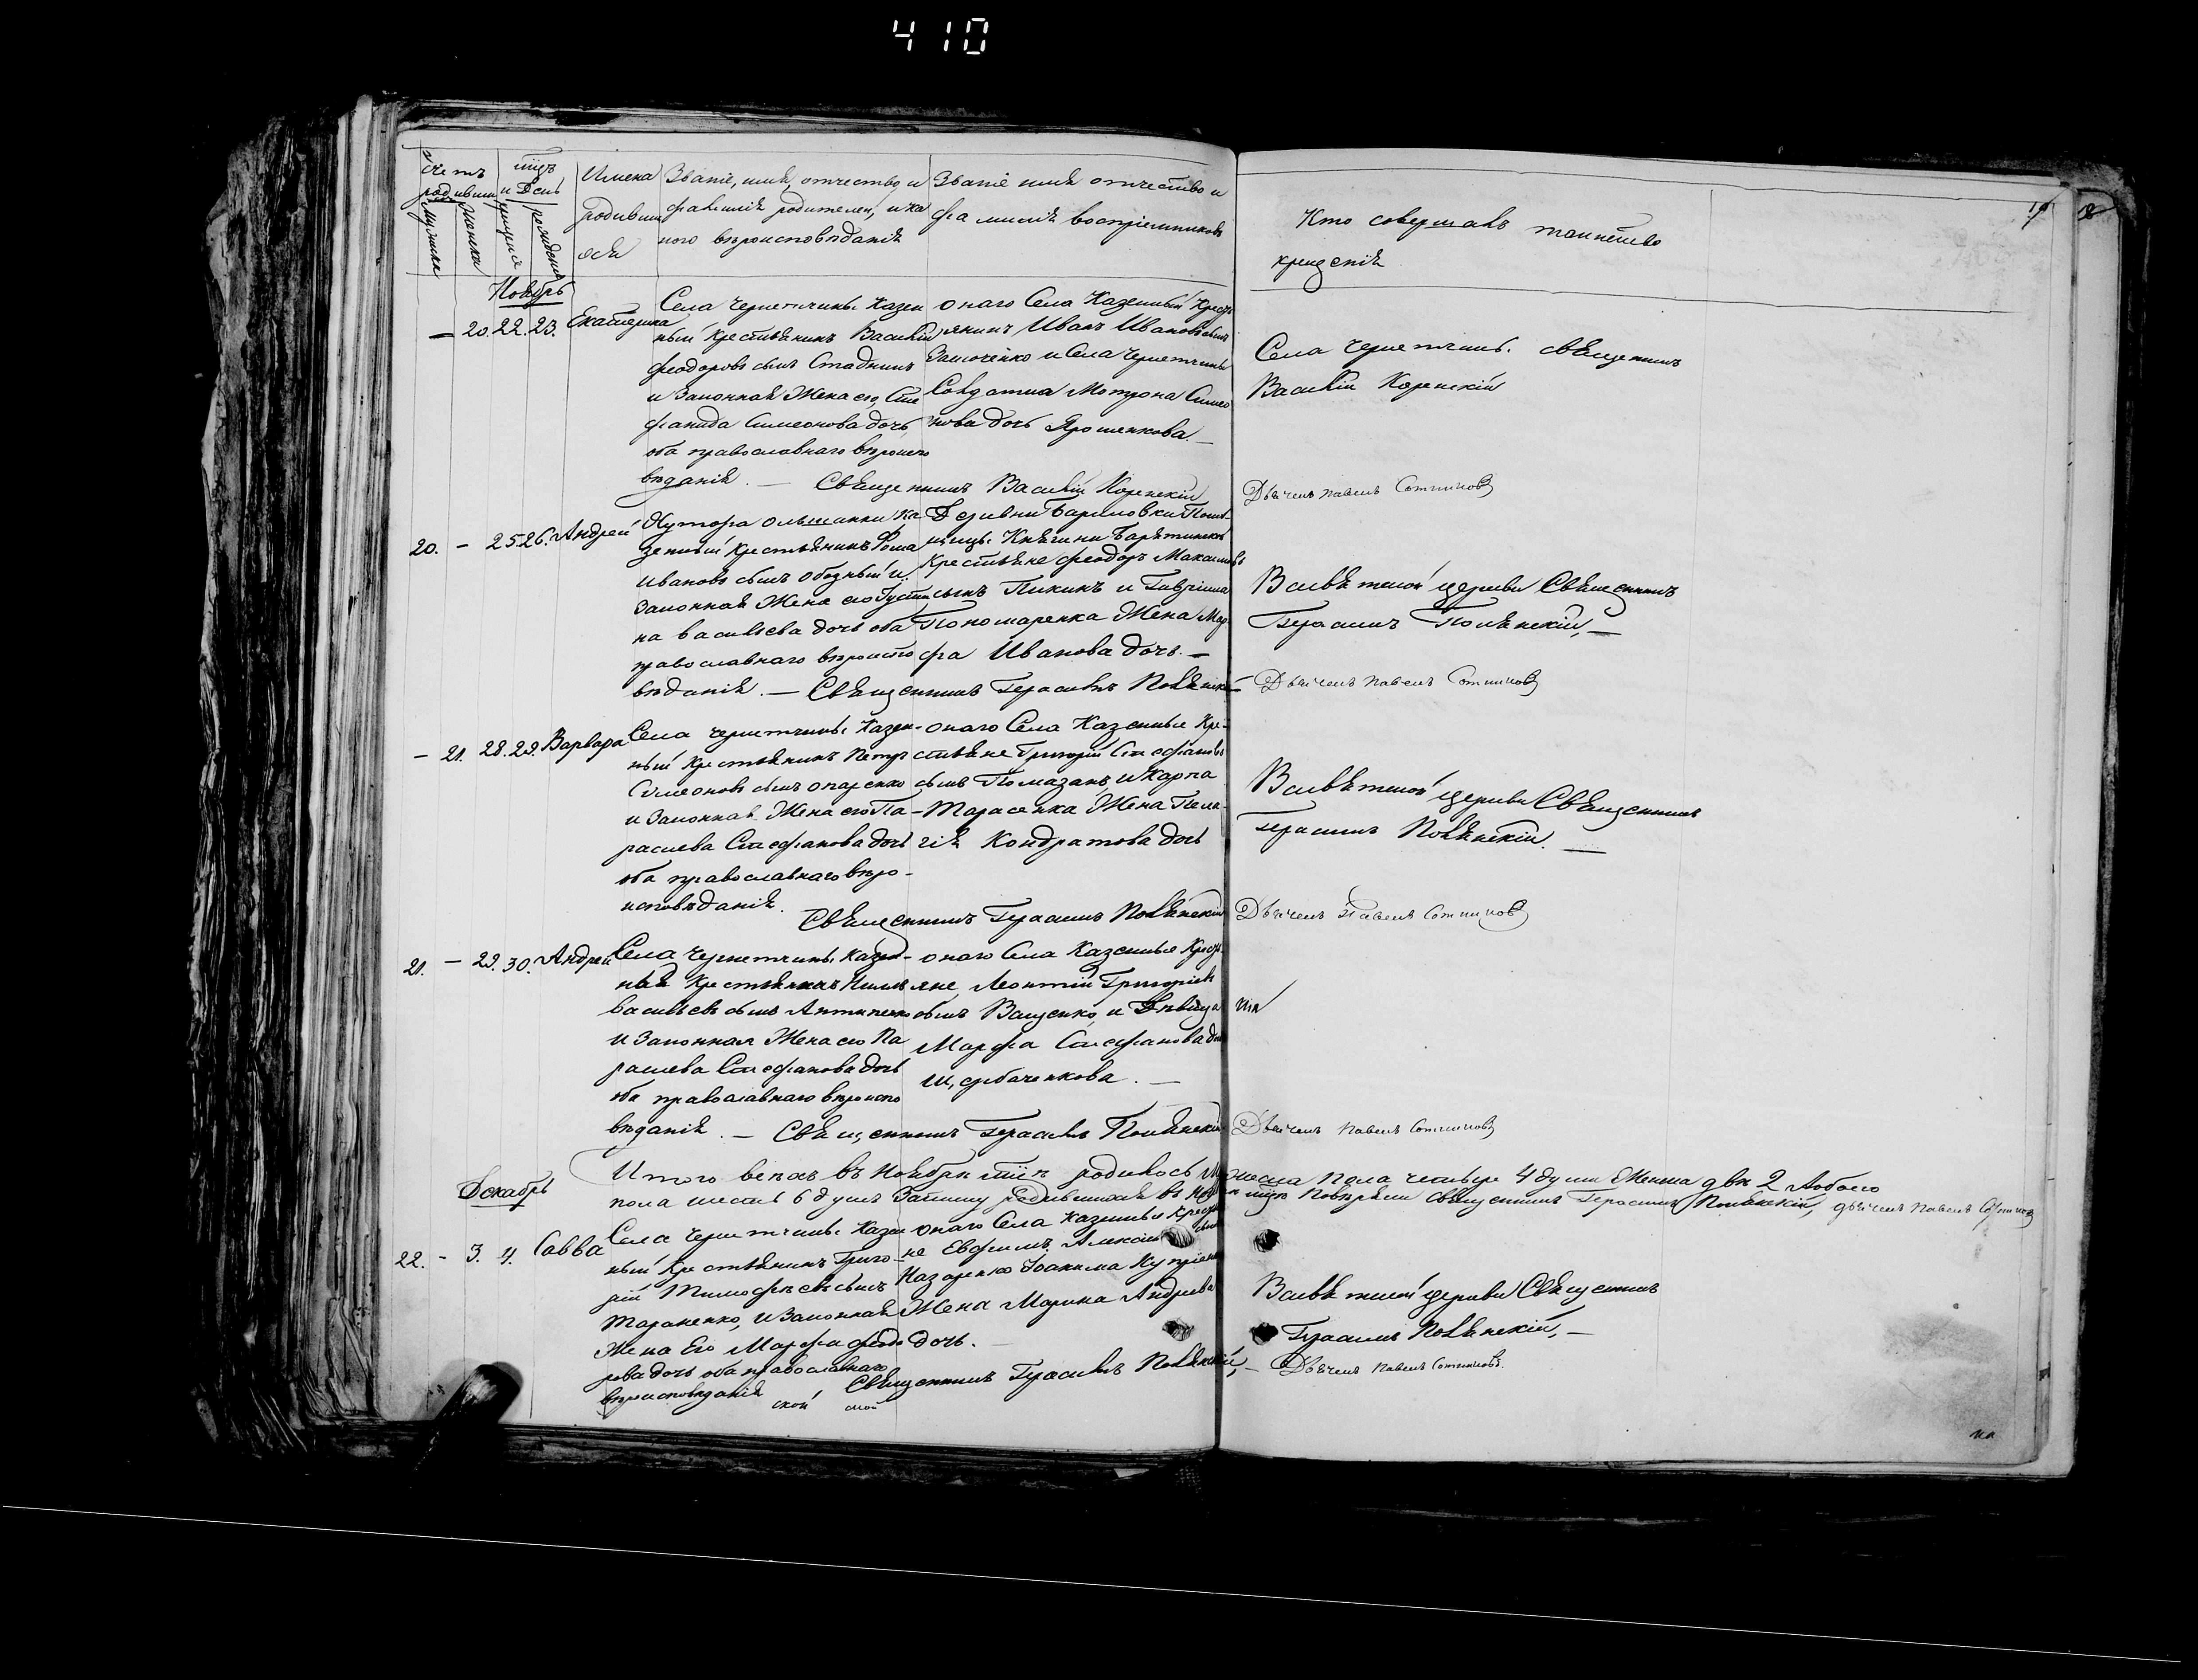 410
Счетъ родивши
мужска
женска
мцъ и День
крещенія
рожденія
Имена родивши ося
Званіе, имя, отчество, и
фамилія родителей, и ка
кого вѣроисповѣданія
Званіе имя отчество и
фамилія воспріемниковъ
Кто совершалъ таинство
крещенія
Ноябрь
— 20. 22. 23. Екатерина
Села Чернетчины казен
ный крестьянинъ Василій
Феодоровъ сынъ Стадникъ
и Законная Жена его, Сте
фанида Симеонова дочь,
оба православнаго вѣроиспо
вѣданія. —
онаго Села Казенный Кресть
янинъ Иванъ Ивановъ сынъ
и Села Чернетчины
Солдатка Мотрона Симео
нова дочь Ярошенкова. —
Села Чернетчины. священникъ
Василій Коренскій
Священникъ Василій Коренскій
Дьячекъ Павелъ Сотниковъ
20. — 25 26. Андрей
Хутора Ольшанки Ка
зенный Крестьянинъ Фома
Ивановъ сынъ Обозный и
Законная Жена его Густи
на Васильева дочь оба
православнаго вѣроиспо
вѣданія. —
Деревни Бариловки Помѣ
щицы Княгини Барятинской
Крестьяне Феодоръ Максимовъ
сынъ Пикинъ и Гавріила
Пономаренка Жена Мар
фа Иванова дочь. —
Всивѣтной церкви Священникъ
Герасимъ Полянскій, —
Священникъ Герасимъ Полянскій
Дьячекъ Павелъ Сотниковъ
— 21. 28. 29. Варвара
Села Чернетчины Казен-
ный Крестьянинъ Петръ
Симеоновъ сынъ Опаренко
и Законная Жена его Па-
раскева Стефанова дочь
оба православнаго вѣро-
исповѣданія.
онаго Села Казенные Кре-
стьяне Григорій Стефановъ
сынъ Помазанъ, и Карпа
Тарасенка Жена Пела-
гія Кондратова дочь
Всивѣтной церкви Священникъ
Герасимъ Полянскій. —
Священникъ Герасимъ Полянскій
Дьячекъ Павелъ Сотниковъ
21. — 29. 30. Андрей
Села Чернетчины казен-
ный Крестьянинъ
Васильевъ сынъ Антипенко
и Законная Жена его Па
раскева Стефанова дочь
оба православнаго вѣроиспо
вѣданія. —
онаго Села Казенные Кресть
яне Леонтій Григоріевъ
сынъ Ващенко, и Дѣвица
Марфа Стефанова дочь
Щербаченкова. —
Священникъ Герасимъ Полянскій
Дьячекъ Павелъ Сотниковъ
Итого всехъ въ Ноябрѣ мцѣ родилось Мужеска пола четыре 4 души Женска двѣ 2 Аобоего
пола шесть 6 душъ Запись родившихся въ мцѣ повѣряли священникъ Герасимъ Полянскій, дьячекъ Павелъ Сотниковъ
Декабрь
22. — 3. 4. Савва
Села Чернетчины. Казен
ный Крестьянинъ Григо-
рій Тимофѣевъ сынъ
Тараненко, и Законная
Жена Его Марфа Феодо
рова дочь оба православнаго
вѣроисповѣданія
онаго Села казенные Крестья
не Евфимъ Алексіевъ сынъ
Назаренко Іоакима
Жена Марина Андреева
дочь. —
Всивѣтной церкви Священникъ
Герасимъ Полянскій, —
Священникъ Герасимъ Полянскій, —
Дьячекъ Павелъ Сотниковъ.
ской